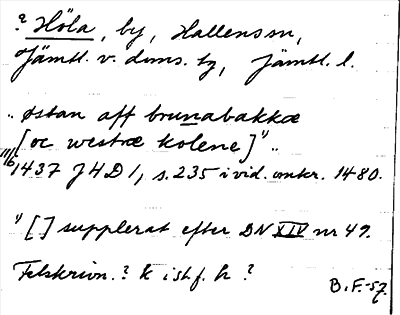 ? Höla, by, Hallens sn,
Jämtl. v. doms. tg, Jämtl. l.
"østan aff brunabakkæ
[oc westræ kolene]"..
11/6 1437 JHD 1, s. 235 i vid. omkr. 1480.
") [] supplerat efter DN XIV nr 49.
Felskrivn.? k i st. f. h ?
B. F. -57.